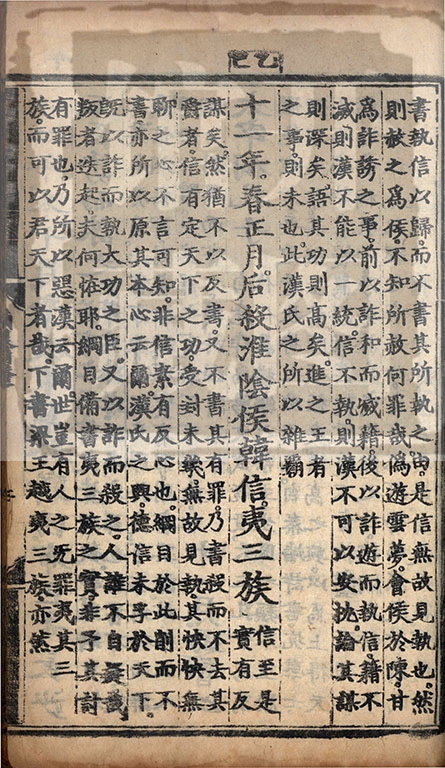 乙巳
書執信以歸而不書其所執之由是信無故見執也然
則赦之爲侯不知所赦何罪哉僞遊雲夢會侯於陳甘
爲詐謗之事前以詐和而滅籍後以詐遊而執信籍不
滅則漢不能以一統信不執則漢不可以奠枕論其謀
則深矣語其功則髙矣進之王者
之事則未也此漢氏之所以雜霸
十一年春正月后殺淮陰侯韓信夷三族信至是
實有反
謀矣然猶不以反書又不書其有罪乃書殺而不去其
爵者信有定天下之功受封未幾無故見執其怏怏無
聊之心不言可知非信素有反心也綱目於此削而不
書亦所以原其本心云爾漢氏之興德信未孚於天下
旣以詐而執大功之臣又以詐而殺之人誰不自疑哉
叛者迭起夫何恠耶綱目備書夷三族之實非予其討
有罪也乃所以惡漢云爾世豈有人之无罪夷其三
族而可以君天下者哉下書梁王越夷三族亦然